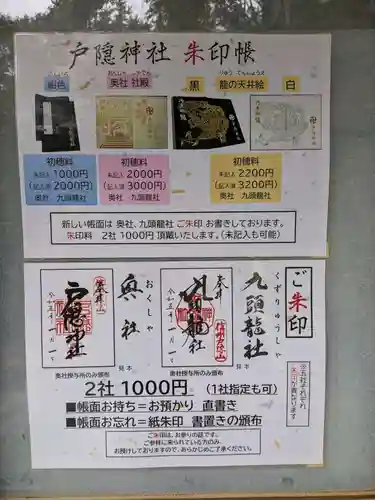 戸隠神社 朱印帳
紺色
奥社 社殿
黒
りゅう てんじょうえ
龍の天井絵
白
初穂料
未記入 1000円
(記入済 2000円)
奥社 九頭龍社
初穂料
未記入 2000円
(記入済 3000円)
奥社 九頭龍社
初穂料
未記入 2200円
(記入済 3200円)
奥社 九頭龍社
新しい帳面は 奥社、九頭龍社 ご朱印 お書きしております。
朱印料 2社 1000円 頂戴いたします。(未記入も可能)
ご朱印
くずりゅうしゃ
九頭龍社
奉拝
九頭龍社
令和五年一月一日
見本
奥社授与所のみ頒布
おくしゃ
奥社
奉拝
戸隠神社
令和五年一月一日
見本
奥社授与所のみ頒布
2社 1000円 (1社指定も可)
■帳面お持ち=お預かり 直書き
■帳面お忘れ=紙朱印 書置きの頒布
ご朱印は、お参りの証です。
ご参拝に来られている方のみ
お授けしておりますので、あらかじめご了承ください。